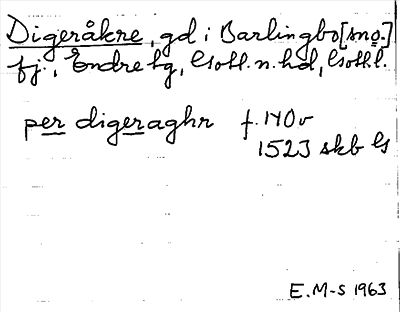 Digeråkre, gd i Barlingbo [sno.]
fj., Endre tg, Gotl. n. hd, Gotl. l.
per digeraghr f. 140v
1523 skb G
E.M-S 1963